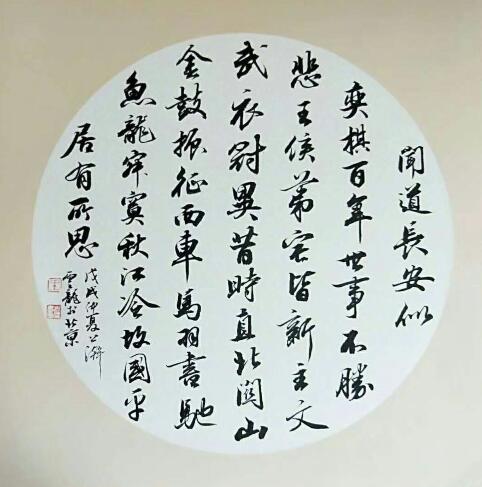 聞道長安似
奕棋百年世事不勝
悲王侯第宅皆新主文
武衣冠異昔時直北關山
金鼓振征西車馬羽書馳
魚龍寂寞秋江冷故國平
居有所思
戊戌仲夏
雲龍於北京